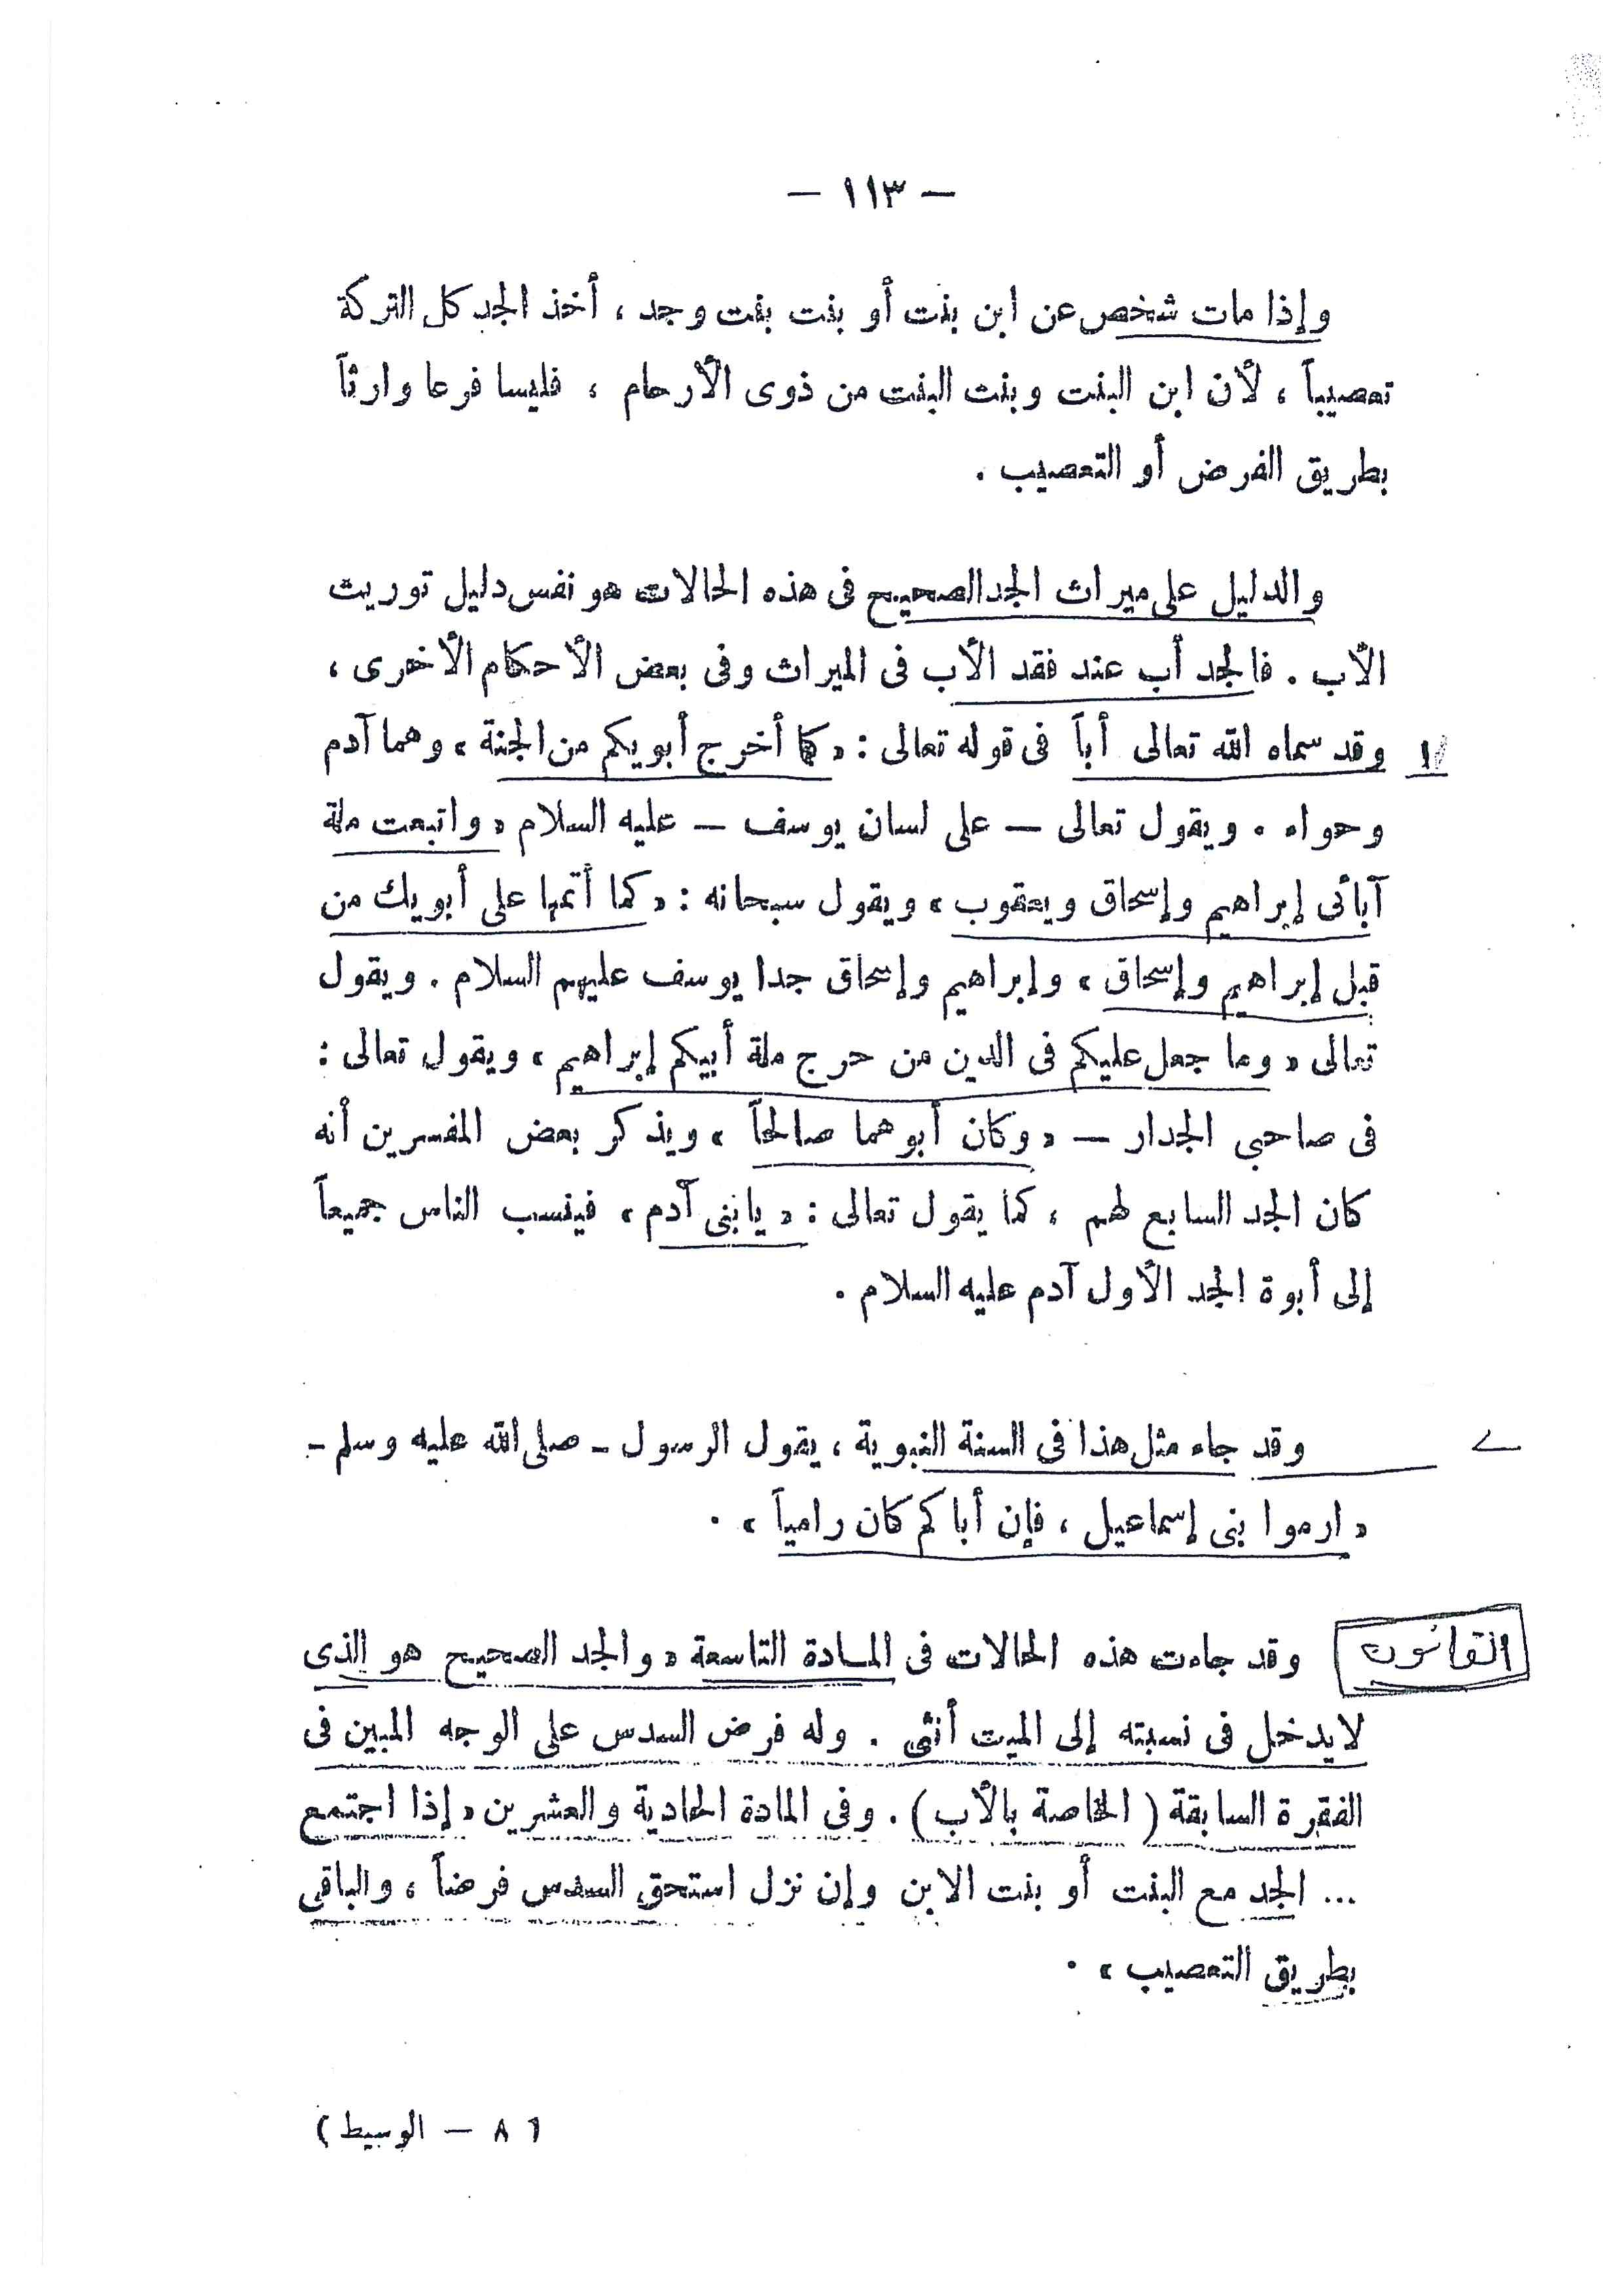 — ١١٣ —
وإذا مات شخص عن ابن بنت أو بنت بنت وجد ، أخذ الجد كل التركة
تعصيباً ، لأن ابن البنت وبنت البنت من ذوى الأرحام ، فليسا فرعا وارثاً
بطريق الفرض أو التعصيب .
والدليل على ميراث الجد الصحيح فى هذه الحالات هو نفس دليل توريث
الأب . فالجد أب عند فقد الأب فى الميراث وفى بعض الأحكام الأخرى ،
١ وقد سماه الله تعالى أباً فى قوله تعالى : « كما أخرج أبويكم من الجنة » وهما آدم
وحواء . ويقول تعالى — على لسان يوسف — عليه السلام « واتبعت ملة
آبائى إبراهيم وإسحاق ويعقوب » ويقول سبحانه : « كما أتمها على أبويك من
قبل إبراهيم وإسحاق » وإبراهيم وإسحاق جدا يوسف عليهم السلام . ويقول
تعالى « وما جعل عليكم فى الدين من حرج ملة أبيكم إبراهيم » ويقول تعالى :
فى صاحبى الجدار — « وكان أبوهما صالحاً » ويذكر بعض المفسرين أنه
كان الجد السابع لهم ، كما يقول تعالى : « يا بنى آدم » فينسب الناس جميعاً
إلى أبوة الجد الأول آدم عليه السلام .
وقد جاء مثل هذا فى السنة النبوية ، يقول الرسول - صلى الله عليه وسلم -
« ارموا بنى إسماعيل ، فإن أباكم كان رامياً » .
القانون وقد جاءت هذه الحالات فى المادة التاسعة « والجد الصحيح هو الذى
لا يدخل فى نسبته إلى الميت أنثى . وله فرض السدس على الوجه المبين فى
الفقرة السابقة ( الخاصة بالأب ) . وفى المادة الحادية والعشرين « إذا اجتمع
... الجد مع البنت أو بنت الابن وإن نزل استحق السدس فرضاً ، والباقى
بطريق التعصيب » .
( ٨ — الوسيط )